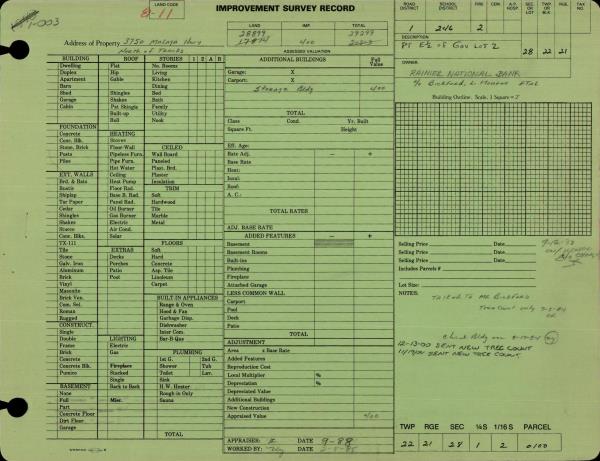 LAND CODE
8-11
1-003
IMPROVEMENT SURVEY RECORD
LAND
IMP.
TOTAL
28899
400
29299
ASSESSED VALUATION
Address of Property 3750 Malaga Hwy
North of Tracks
ROAD DISTRICT
SCHOOL DISTRICT
FIRE
A.P. HOSP.
SEC
TWP
RGE
1
246
2
DESCRIPTION
PT E½ of Gov Lot 2
28 22 21
OWNER:
RAINIER NATIONAL BANK
Building Outline. Scale, 1 Square =
BUILDING
Dwelling
Duplex
Apartment
Barn
Shed
Garage
Cabin
ROOF
Flat
Hip
Gable
Shingles
Shakes
Pat Shingle
Built-up
Roll
STORIES 1 2 A B
No. Rooms
Living
Kitchen
Dining
Bed
Bath
Family
Utility
Nook
FOUNDATION
Concrete
Conc. Blk.
Stone, Brick
Posts
Piles
HEATING
Stoves
Floor-Wall
Pipeless Furn.
Pipe Furn.
Hot Water
Ceiling
Heat Pump
Floor Rad.
Base B. Rad.
Panel Rad.
Oil Burner
Gas Burner
Electric
Air Cond.
Solar
CEILED
Wall Board
Paneled
Plast. Brd.
Plaster
Insulation
TRIM
Soft
Hardwood
Tile
Marble
Metal
EXT. WALLS
Brd. & Bats
Rustic
Shiplap
Tar Paper
Cedar
Shingles
Shakes
Stucco
Conc. Blks.
TX-111
Tile
Stone
Galv. Iron
Aluminum
Brick
Vinyl
Masonite
Brick Van.
Com. Sel.
Roman
Rugged
EXTRAS
Decks
Porches
Patio
Pool
FLOORS
Soft
Hard
Concrete
Asp. Tile
Linoleum
Carpet
BUILT-IN APPLIANCES
Range & Oven
Hood & Fan
Garbage Disp.
Dishwasher
Inter Com.
Bar-B-Que
CONSTRUCT.
Single
Double
Frame
Brick
Concrete
Conc. Blk.
Pumice
LIGHTING
Electric
Gas
Fireplace
Stacked
Single
Back to Back
PLUMBING
1st G. 2nd G.
Shower Tub
Toilet Lav.
Sink
H.W. Heater
Rough in Only
Sauna
BASEMENT
None
Full
Part
Concrete Floor
Dirt Floor
Garage
Misc.
TOTAL
ADDITIONAL BUILDINGS
Full Value
Garage: X
Carport: X
Storage Bldg 400
TOTAL
Class Cond. Yr. Built
Square Ft. Height
Eff. Age:
Rate Adj. − +
Base Rate
Heat:
Insul:
Roof:
A. C.:
TOTAL RATES
ADJ. BASE RATE
ADDED FEATURES − +
Basement
Basement Rooms
Built-ins
Plumbing
Fireplace
Attached Garage
LESS COMMON WALL
Carport
Pool
Deck
Patio
TOTAL
ADJUSTMENT
Area x Base Rate
Added Features
Reproduction Cost
Local Multiplier %
Depreciation %
Depreciated Value
Additional Buildings
New Construction
Appraised Value 400
APPRAISER: DATE 9-88
WORKED BY: DATE
Selling Price Date
Selling Price Date
Selling Price Date
Includes Parcels #
Lot Size:
NOTES:
Talked to Mr Bickford
Tree Count only
12-13-00 SENT NEW TREE COUNT
SENT NEW TREE COUNT
TWP RGE SEC ¼S 1/16S PARCEL
22 21 28 1 2 0100